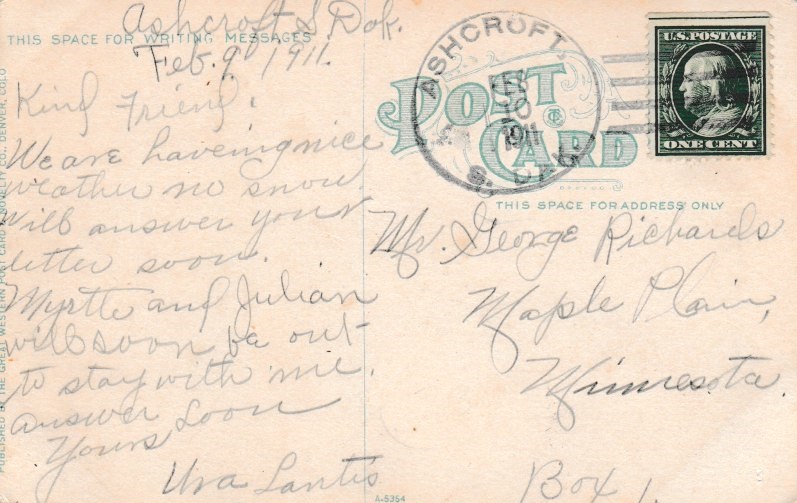 Ashcroft S. Dak.
THIS SPACE FOR WRITING MESSAGES
Feb. 9 1911.
Kind Friend:
We are haveing nice
weather no snow.
Will answer your
letter soon.
Myrtle and Julian
will soon be out
to stay with me.
answer soon
Yours
Ura Lantis
PUBLISHED BY THE GREAT WESTERN POST CARD & NOVELTY CO., DENVER, COLO
A-5354
POST CARD
ASHCROFT
FEB
1911
S. DAK.
U.S. POSTAGE
ONE CENT
THIS SPACE FOR ADDRESS ONLY
Mr. George Richards
Maple Plain,
Minnesota.
Box 1